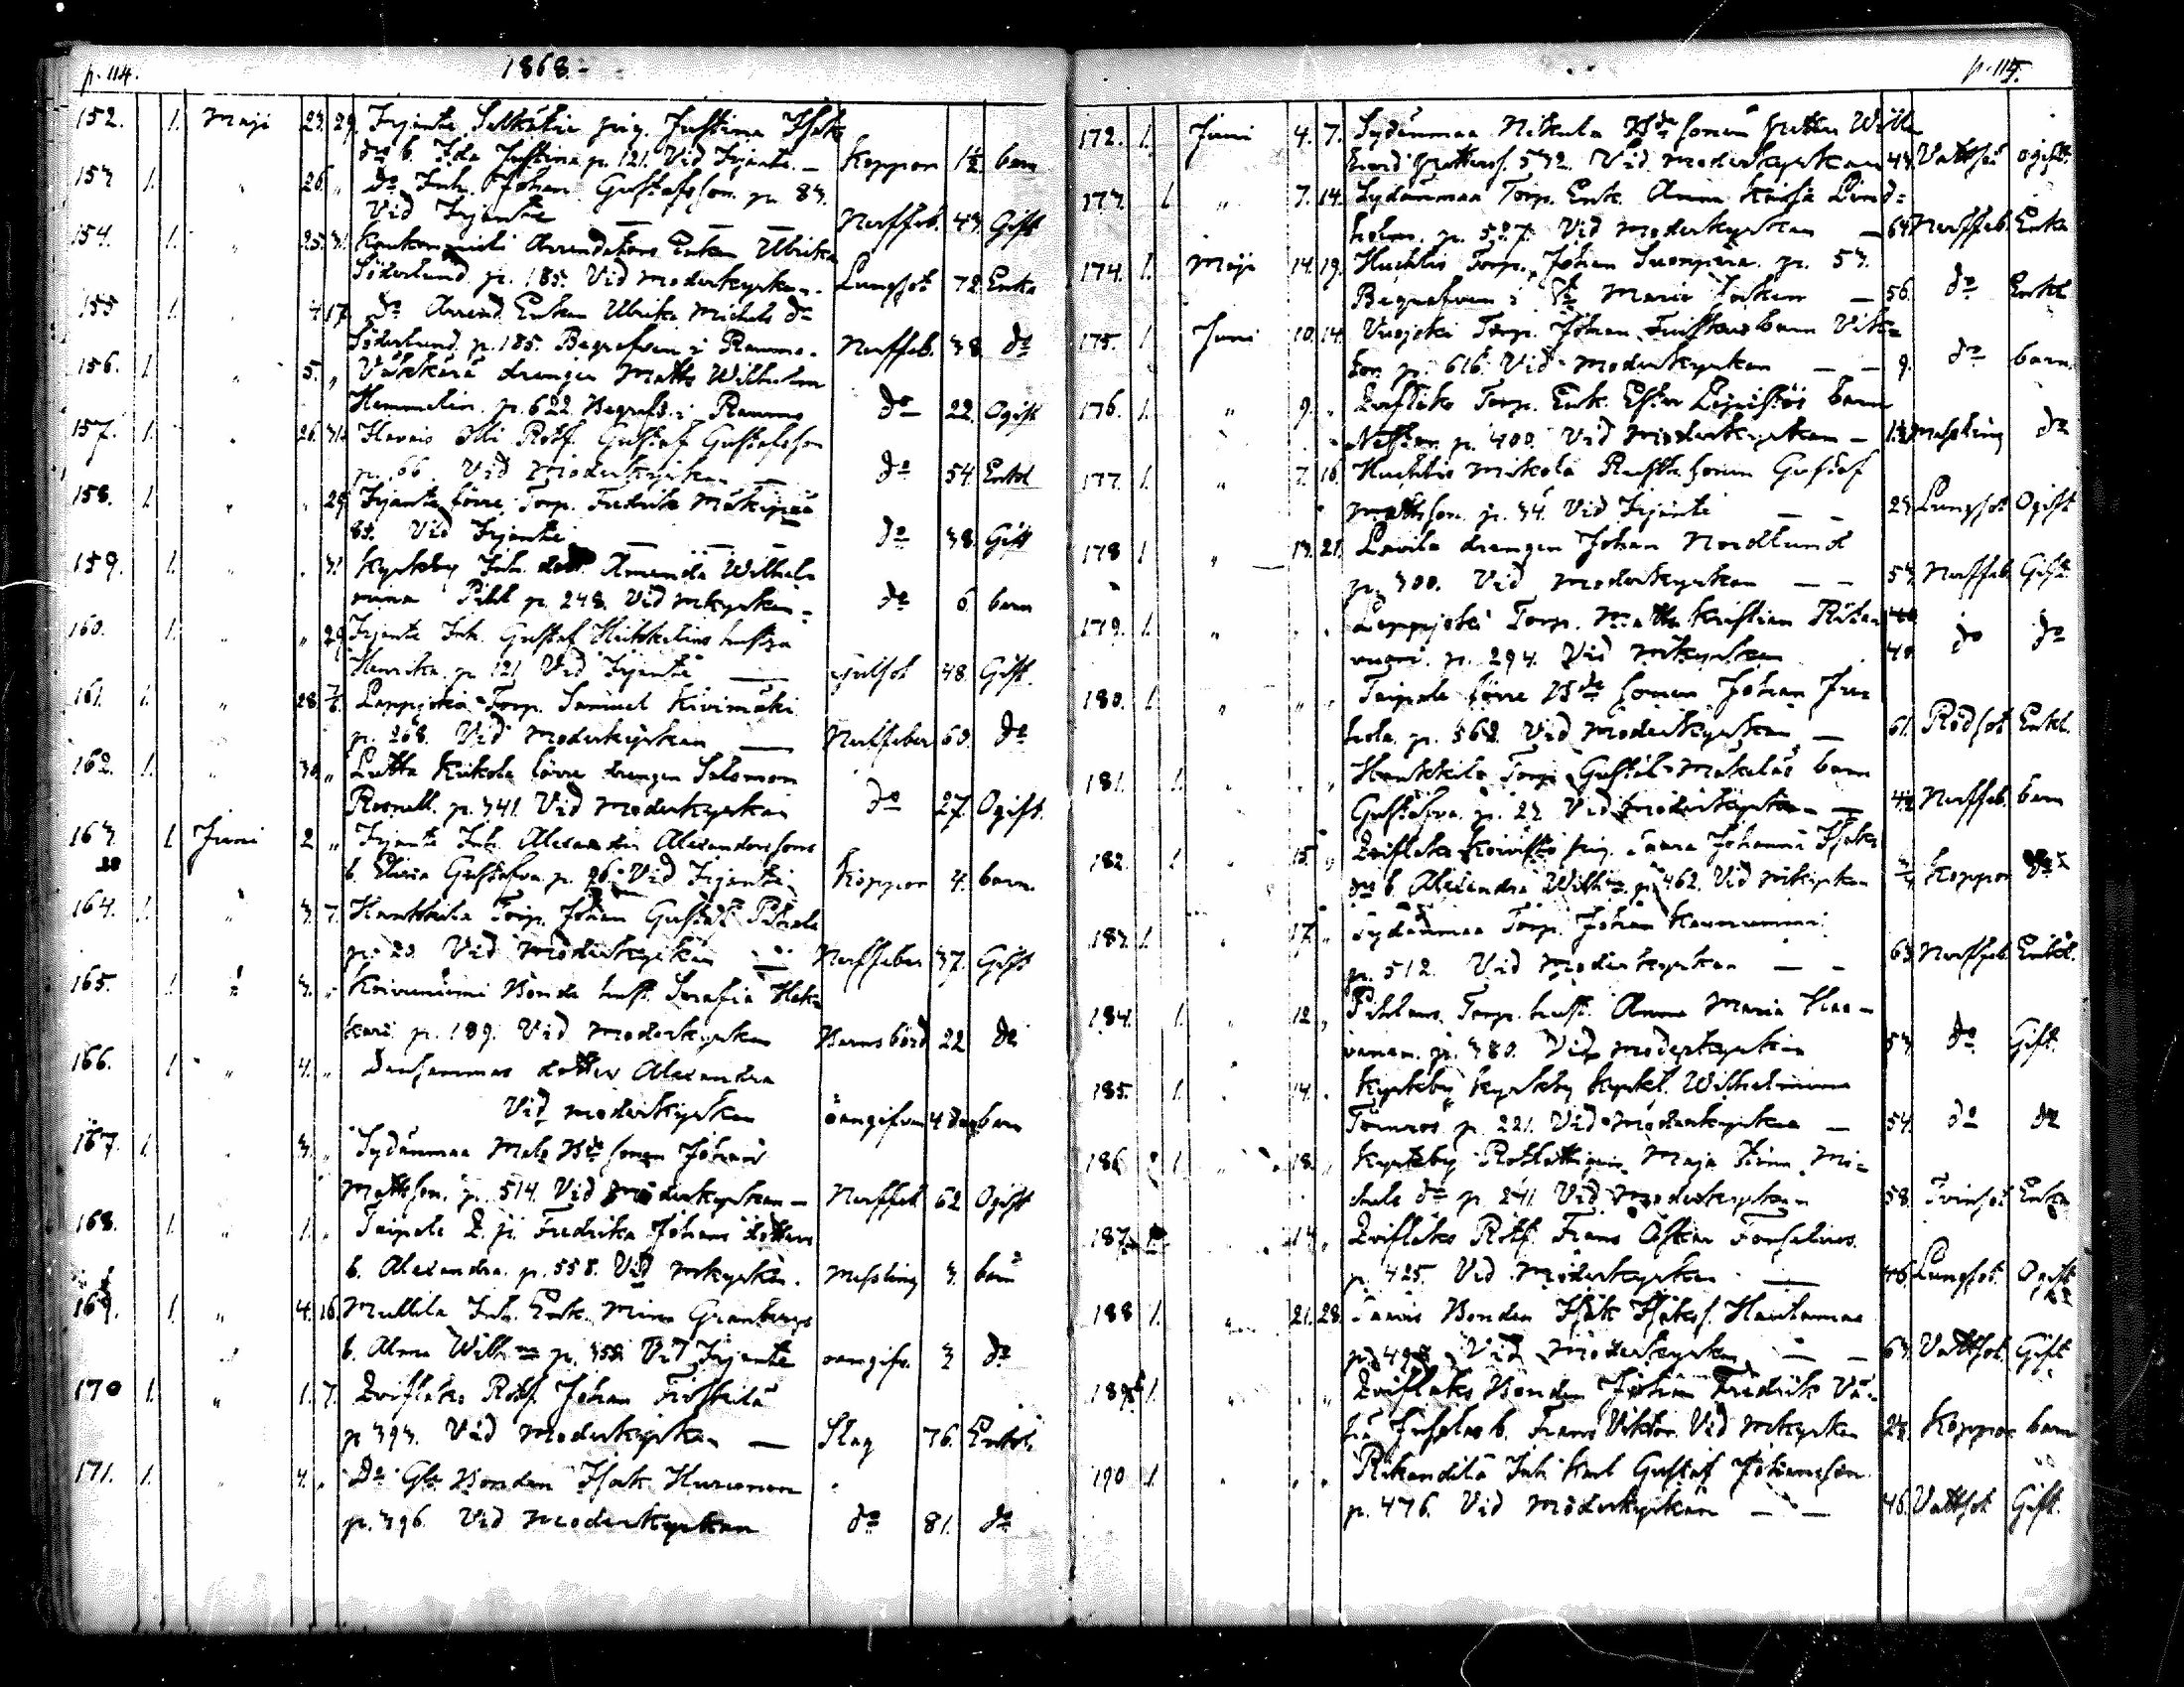 p. 114.
1868.
152. 1. Maji 23. 29. Irjante Selkätie pig. Justina Isaks
d:r b. Ida Justina p. 121. Vid Irjante. — Koppor 1½ barn
153 1. " 26. " D:o Inh. Johan Gustafsson. p. 83.
Vid Irjante — — — Nerffeb. 43. Gift
154. 1. " 25. 31. Arrendators Enkan Ulrika
Söderlund. p. 185. Vid Moderkyrkan. Lungsot 72. Enka
155 1. 4 17. d:o Arrend. Enkan Ulrika Michels d:r
Söderlund. p. 185. Begrafven i Raumo. Nerffeb. 38. d:o
156. 1. " 5. " drengen Matts Wilhelm
Hemmelin. p. 622. Begrafv. i Raumo d:o 22. Ogift
157. 1. " 26. 31. Rotf. Gustaf Gustafsson
p. 66. Vid Moderkyrkan — d:o 54. Enkl
158. 1. " " 29. Irjante Sörre Torp. Fredrik Mäkipää
85. Vid Irjante — — — d:o 38. Gift
159. 1. " " 31. Kyrkby Inh. dott. Amanda Wilhel-
mina Pihl p. 248. Vid Mkyrkan. d:o 6. barn
160. 1. " " 29. Irjante Inh. Gustaf Heikkilins hustru
Henrika p. 121 Vid Irjante — Gulsot 48. Gift.
161. 1. " 28. 7/6. Lappijoki Torp. Samuel Kivimäki
p. 268. Vid Moderkyrkan — Nerffeber 60. d:o
162. 1. " 30. " Lutta Krikola Sörre drengen Salomon
Rosnell. p. 341. Vid Moderkyrkan d:o 27. Ogift.
163. 1. Juni 2 " Irjante Inh. Alexander Alexanderssons
b. Elvira Gustafva. p. 96. Vid Irjante Koppor 4. barn.
164. 1. " 3. 7. Hankkila Torp. Johan Gustaf
p. 20. Vid Moderkyrkan — Nerffeber 37. Gift
165. 1. " 3. " Koivuniemi Bonde hust. Serafia Hak-
kari p. 189. Vid Moderkyrkan Barnsbörd 22 d:o
166. 1. " 4. " Densammas dotter Alexandra
Vid Moderkyrkan oangifven 4 dag. barn
167. 1. " 3. " Sydänmaa B:de sonen Johan
Mattsson. p. 514. Vid Moderkyrkan — Nerffeb 62 Ogift
168. 1. " 1. " Taipale Fredrika Johans dotters
b. Alexandra. p. 558. Vid Mkyrkan. Messling 3. barn
169. 1. " 4. 16. Mullila Inh. Enk. Mina Granbergs
b. Alma Wilh:na p. 358. Vid Irjante oangifv. 3 d:o
170 1. " 1. 7. Eviflaks Rotf. Johan
p. 393. Vid Moderkyrkan — Slag 76. Enkl.
171. 1. " 4. " D:o Gl. Bonden Isak Hurvonen
p. 396. Vid Moderkyrkan d:o 81. d:o
p. 115.
172. 1. Juni 4. 7. Sydänmaa Nikula B:de sonen Petter Wille-
hard Petterss. 532. Vid Moderkyrkan 43. Vattsot ogift.
173. 1 " 7. 14. Sydänmaa Torp. Enk. Anna Kaisa Lind-
holm. p. 527. Vid Moderkyrkan — 64. Nerffeb. Enka
174. 1. Maji 14. 19. Huchtis Torp. Johan p. 53.
Begrafven i S:t Marie Socken — 56. d:o Enkl
175. 1. Juni 10. 14. Vuojoki Torp. Johan barn Vik-
tor. p. 616. Vid Moderkyrkan — — 9. d:o barn.
176. 1. " 9. " Eviflaks Torp. Enk. Ester barn
Nestor. p. 400. Vid Moderkyrkan — 1½ Messling d:o
177. 1. " 7. 16. Huchtis Mikola sonen Gustaf
Mattsson. p. 34. Vid Irjante — — 23 Lungsot Ogift
178 1 " 13. 21. Lavila drengen Johan Nordlund
p. 300. Vid Moderkyrkan — — 53. Nerffeb. Gift.
179. 1. " " " Lappijoki Torp. Matts Kristian
p. 294. Vid Mkyrkan 40. d:o d:o
180. 1. " " " Taipale Sörre B:de sonen Johan
p. 562. Vid Moderkyrkan — 61. Rödsot Enkl.
181. 1. " " " Hankkila Torp. Gustaf Mäkeläs barn
Gustafva. p. 27. Vid Moderkyrkan — 4½ Nerffeb. barn
182. 1 " 15. " Eviflaks Koivisto pig. Johanna Isaks
d:r b. Alexandra Wilh:na p. 462. Vid Mkyrkan ¾ Koppor d:o
183. 1. " 17. " Sydänmaa Torp. Johan
p. 512. Vid Moderkyrkan — — 63. Nerffeb. Enkl.
184. 1. " 12. " Torp. hust. Anna Maria
p. 380. Vid Moderkyrkan 53. d:o Gift.
185. 1. " 14. " Kyrkby Kyrkby Kyrkl. Wilhelmina
Törnros p. 221. Vid Moderkyrkan — 54. d:o d:o
186 1. " 18. " Kyrkby Maja Stina Mi-
chels d:r p. 241. Vid Moderkyrkan 58. Tvinsot Enka
187. 1. " 14. " Eviflaks Rotf. Frans Oskar Forselius.
p. 425. Vid Moderkyrkan — 46. Lungsot. Ogift
188 1. " 21. 28. Bonden Isak Isakss. Hautamaa
p. 498. Vid Moderkyrkan — — 63. Vattsot. Gift
189. 1. " " " Eviflaks Bonden Johan Fredrik
b. Frans Viktor. Vid Mkyrkan Koppor barn
190 1. " " " Inh. Karl Gustaf Johansson.
p. 476. Vid Moderkyrkan — — 46. Vattsot Gift.